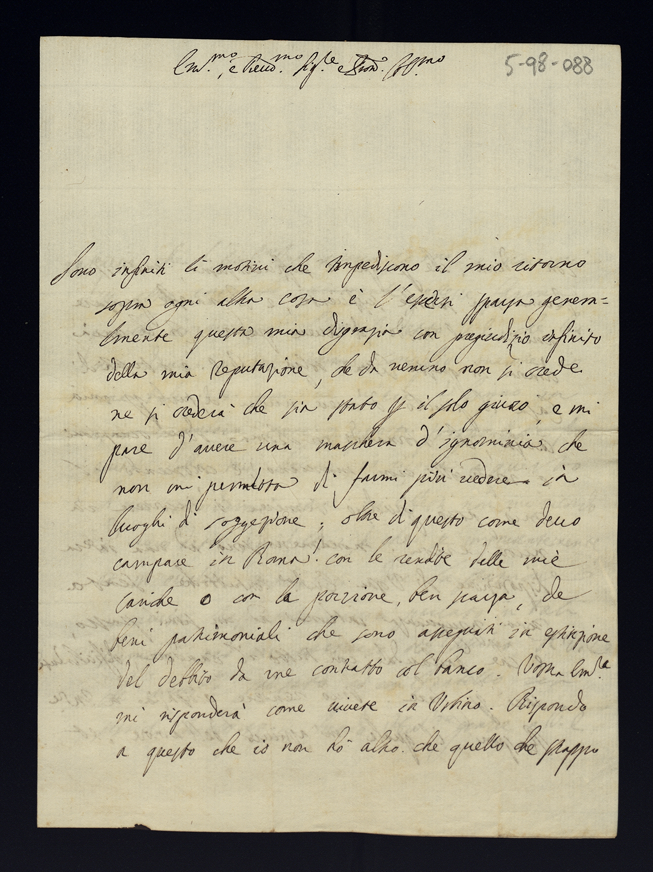 5-98-088
Em.mo, e Reud.mo Sig.re e Pron. Col.mo
Sono infiniti li motivi che impediscono il mio ritorno
sopra ogni altra cosa è l'essersi sparsa genera=
lmente questa mia disgrazia con pregiudizio infinito
della mia reputazione, che da nemino non si crede
ne si crederà che sia stato p il solo giuoco, e mi
pare d'avere una maschera d'ignominia che
non mi permetta di farmi più vedere in
luoghi di soggezione; oltre di questo come devo
campare in Roma! con le rendite delle mie
cariche o con la porzione, ben scarsa, de
beni patrimoniali che sono asseguiti in estinzione
del debbito da me contratto col banco. Vostra Em.za
mi risponderà come vivere in Urbino. Rispondo
a questo che io non hò altro che quello che strappo